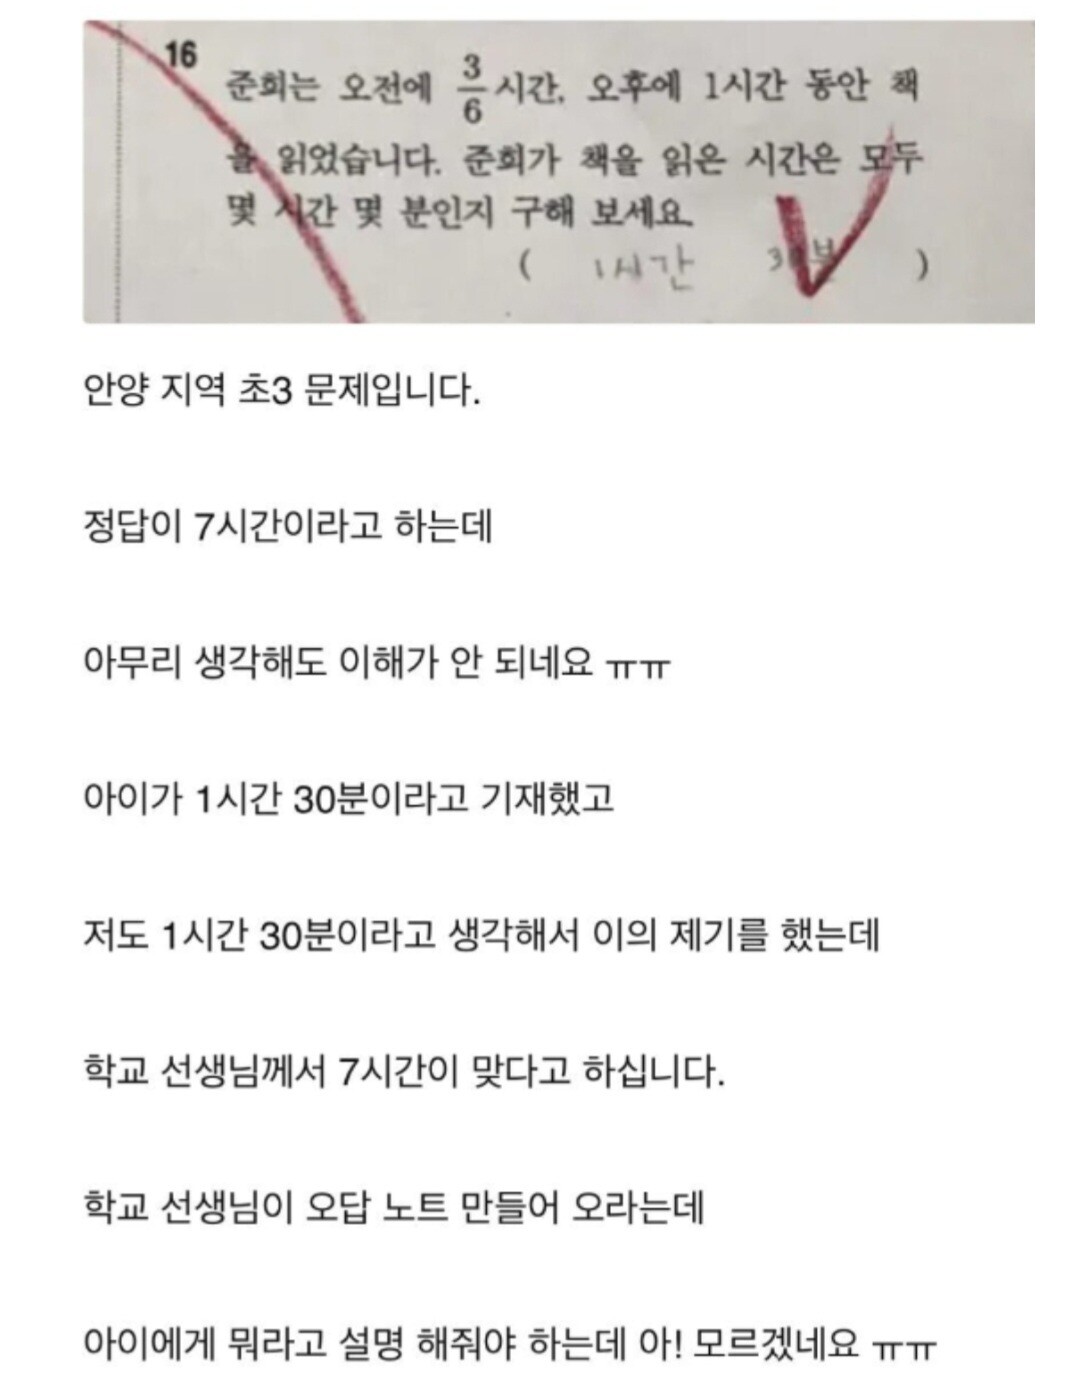 16
준희는 오전에 3/6 시간, 오후에 1시간 동안 책
을 읽었습니다. 준희가 책을 읽은 시간은 모두
몇 시간 몇 분인지 구해 보세요.
( 1시간 30분 )
안양 지역 초3 문제입니다.
정답이 7시간이라고 하는데
아무리 생각해도 이해가 안 되네요 ㅠㅠ
아이가 1시간 30분이라고 기재했고
저도 1시간 30분이라고 생각해서 이의 제기를 했는데
학교 선생님께서 7시간이 맞다고 하십니다.
학교 선생님이 오답 노트 만들어 오라는데
아이에게 뭐라고 설명 해줘야 하는데 아! 모르겠네요 ㅠㅠ